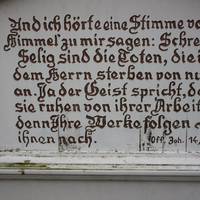 Und ich hörte eine Stimme
Himmel zu mir sagen:
Selig sind die Toten, die
dem Herrn sterben von nu
an. Ja der Geist spricht,
sie ruhen von ihrer Arbeit
denn Ihre Werke folgen
ihnen nach. Off. Joh. 14,